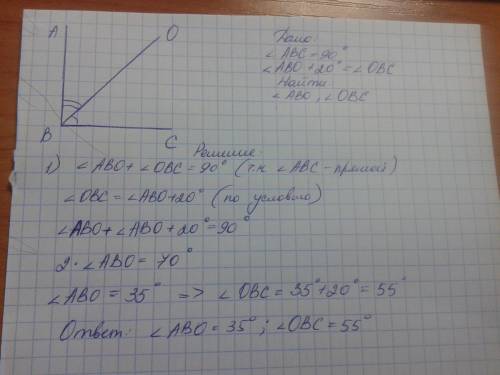 A
O
B
C
Дано:
∠ABC = 90°
∠ABO + 20° = ∠OBC
Найти:
∠ABO, ∠OBC
Решение:
1) ∠ABO + ∠OBC = 90° (т.к. ∠ABC - прямой)
∠OBC = ∠ABO + 20° (по условию)
∠ABO + ∠ABO + 20° = 90°
2 · ∠ABO = 70°
∠ABO = 35° => ∠OBC = 35° + 20° = 55°
Ответ: ∠ABO = 35°; ∠OBC = 55°